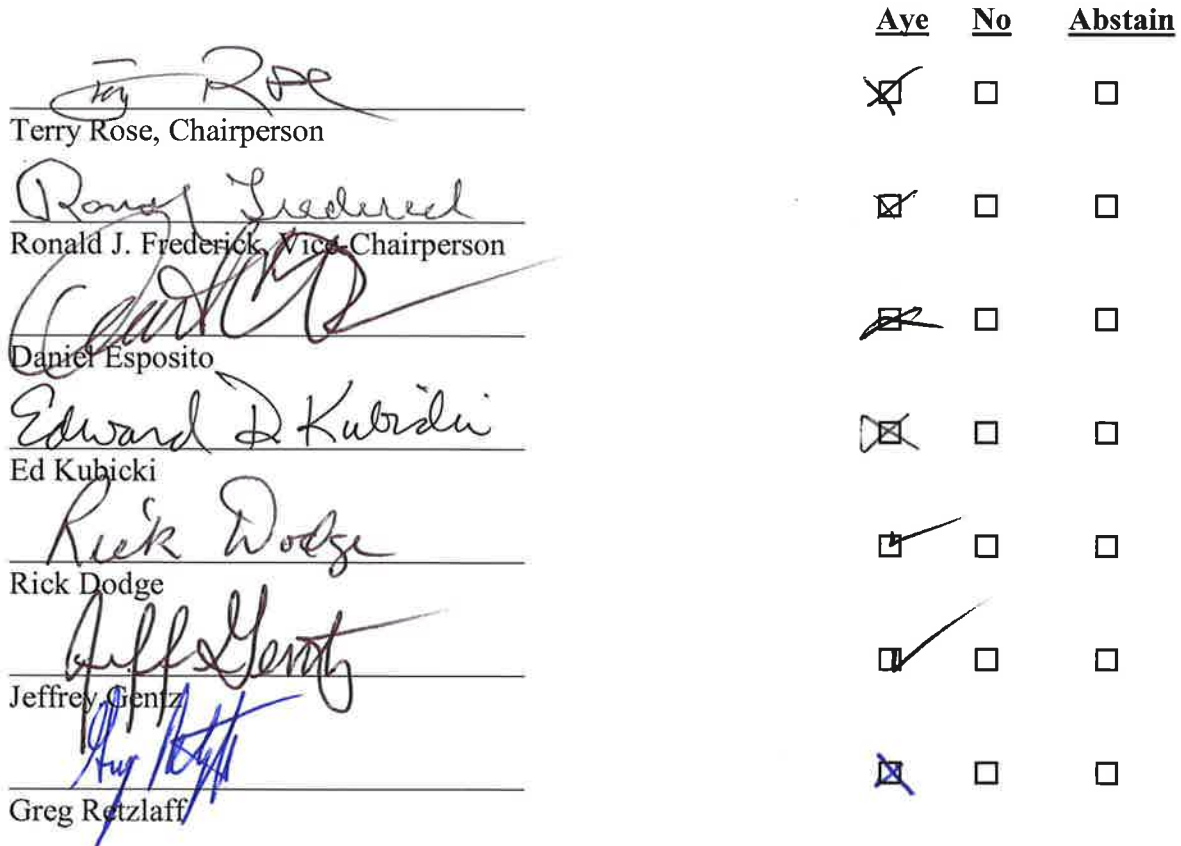 Aye No Abstain
Terry Rose
Terry Rose, Chairperson
Ronald Frederick
Ronald J. Frederick, Vice-Chairperson
Daniel Esposito
Edward D Kubicki
Ed Kubicki
Rick Dodge
Rick Dodge
Jeff Gentz
Jeffrey Gentz
Greg Retzlaff
Greg Retzlaff